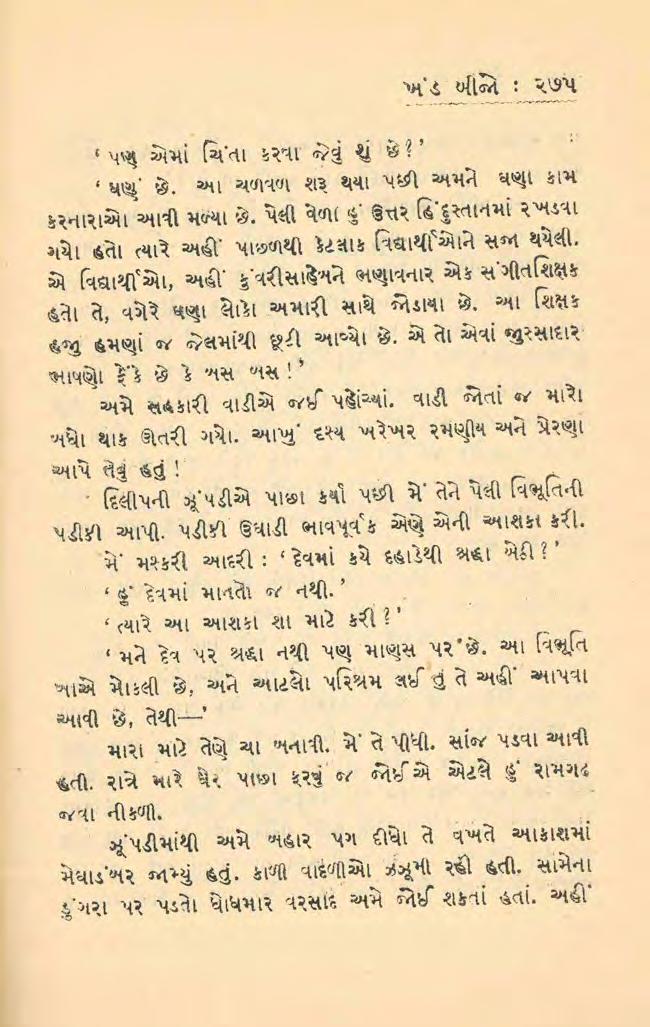 ખંડ બીજો : ૨૭૫
‘ પણ એમાં ચિંતા કરવા જેવું શું છે?’
‘ ઘણું છે. આ ચળવળ શરૂ થયા પછી અમને ઘણા કામ
કરનારાઓ આવી મળ્યા છે. પેલી વેળા હું ઉત્તર હિંદુસ્તાનમાં રખડવા
ગયો હતો ત્યારે અહીં પાછળથી કેટલાક વિદ્યાર્થીઓને સજા થયેલી.
એ વિદ્યાર્થીઓ, અહીં કુંવરીસાહેબને ભણાવનાર એક સંગીતશિક્ષક
હતો તે, વગેરે ઘણા લોકો અમારી સાથે જોડાયા છે. આ શિક્ષક
હજુ હમણાં જ જેલમાંથી છૂટી આવ્યો છે. એ તો એવાં જુસ્સાદાર
ભાષણો ફેંકે છે કે બસ બસ !’
અમે સહકારી વાડીએ જઈ પહોંચ્યાં. વાડી જોતાં જ મારો
બધો થાક ઊતરી ગયો. આખું દૃશ્ય ખરેખર રમણીય અને પ્રેરણા
આપે તેવું હતું !
દિલીપની ઝૂંપડીએ પાછા ફર્યા પછી મેં તેને પેલી વિભૂતિની
પડીકી આપી. પડીકી ઉઘાડી ભાવપૂર્વક એણે એની આશકા કરી.
મેં મશ્કરી આદરી : ‘ દેવમાં કયે દહાડેથી શ્રદ્ધા બેઠી ?’
‘ હું દેવમાં માનતો જ નથી.’
‘ ત્યારે આ આશકા શા માટે કરી ?’
‘ મને દેવ પર શ્રદ્ધા નથી પણ માણસ પર છે. આ વિભૂતિ
બાએ મોકલી છે, અને આટલો પરિશ્રમ લઈ તું તે અહીં આપવા
આવી છે, તેથી—’
મારા માટે તેણે ચા બનાવી. મેં તે પીધી. સાંજ પડવા આવી
હતી. રાત્રે મારે ઘેર પાછા ફરવું જ જોઈએ એટલે હું રામગઢ
જવા નીકળી.
ઝૂંપડીમાંથી અમે બહાર પગ દીધો તે વખતે આકાશમાં
મેઘાડંબર જામ્યું હતું. કાળી વાદળીઓ ઝઝૂમી રહી હતી. સામેના
ડુંગરા પર પડતો ધોધમાર વરસાદ અમે જોઈ શકતાં હતાં. અહીં